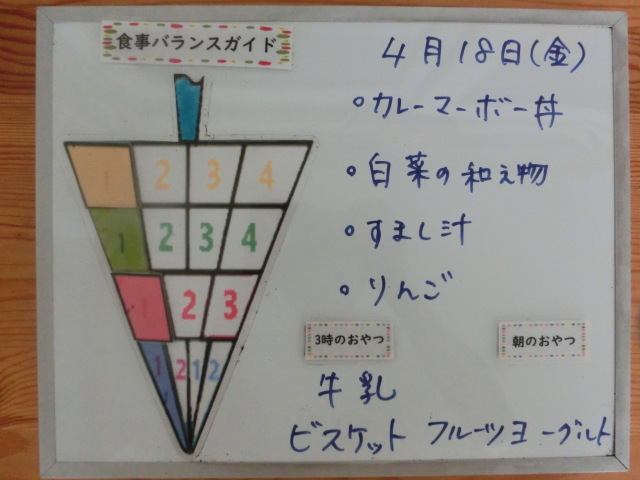 食事バランスガイド
4月18日(金)
。カレーマーボー丼
。白菜の和え物
。すまし汁
。りんご
1 2 3 4
1 2 3 4
1 2 3
1 2 1 2
3時のおやつ
朝のおやつ
牛乳
ビスケット フルーツヨーグルト